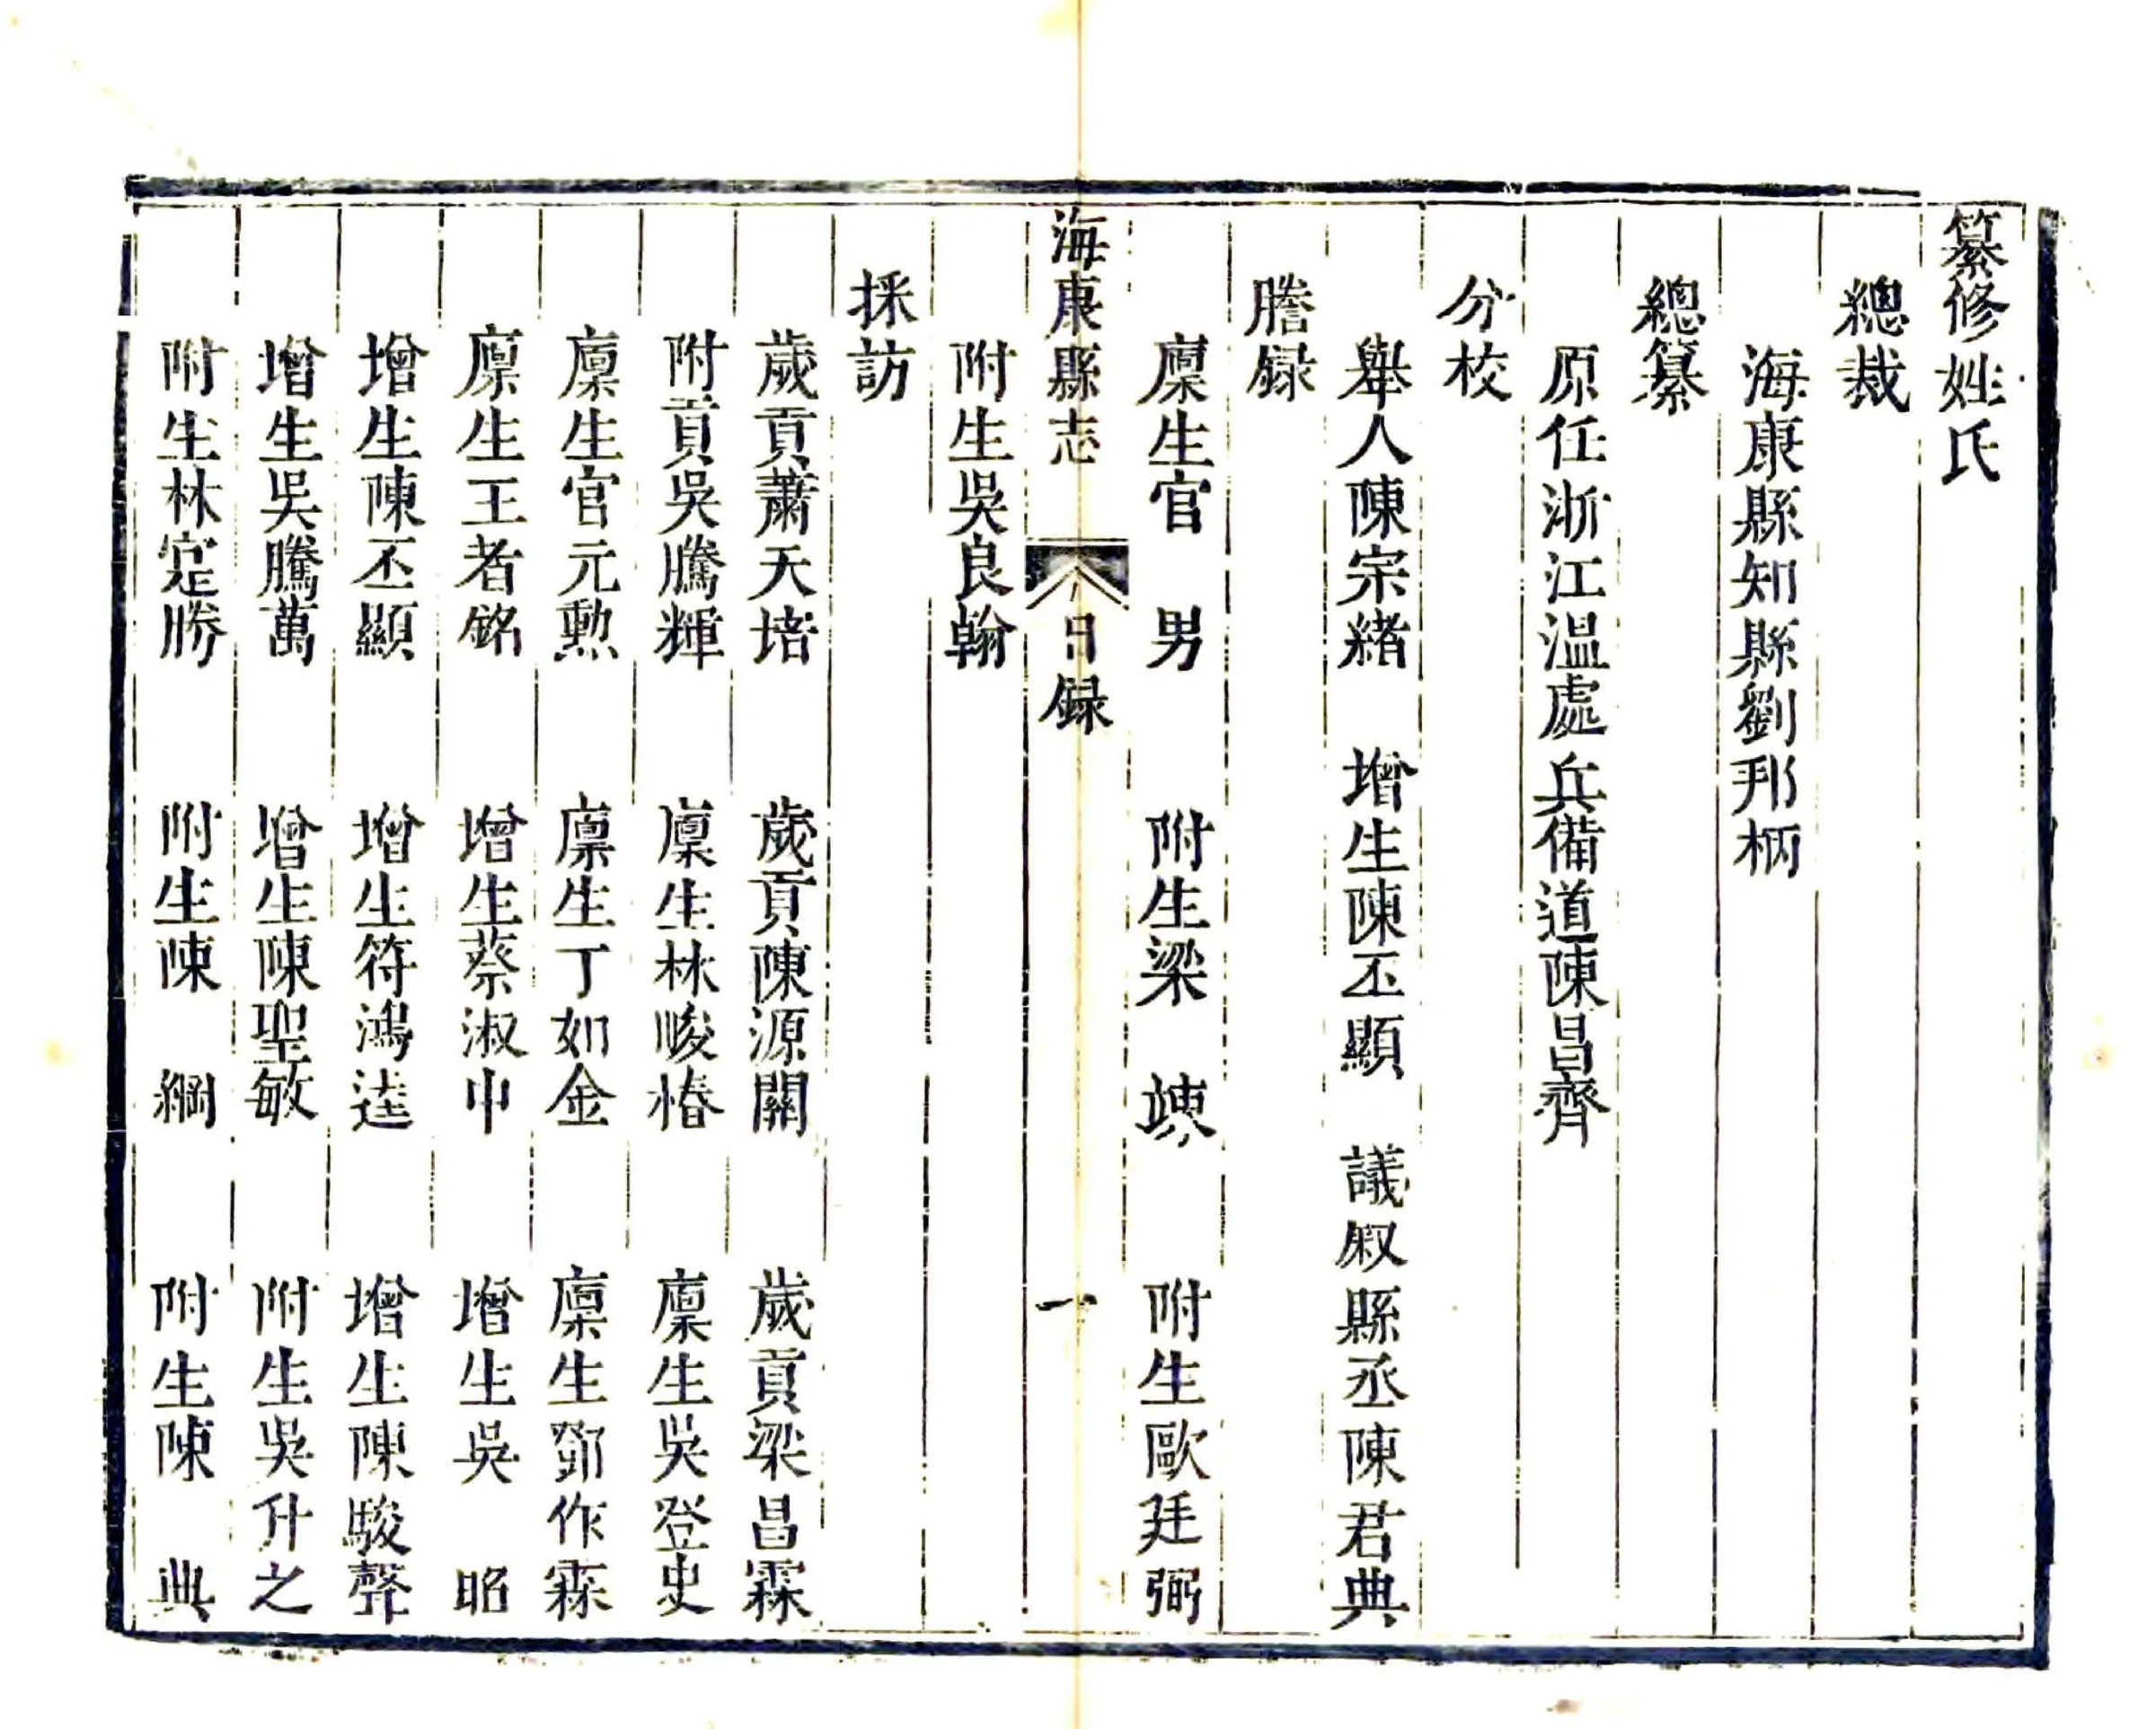 纂修姓氏
總裁
海康縣知縣劉邦柄
總纂
原任浙江温處兵備道陳昌齊
分校
舉人陳宗緒　增生陳丕顯　議叙縣丞陳君典
謄録
廩生官　男　附生梁　竦　附生歐廷弼
海康縣志　目録　一
附生吳良翰
採訪
歲貢蕭天培　歲貢陳源關　歲貢梁昌霖
附貢吳騰輝　廩生林峻椿　廩生吳登史
廩生官元勲　廩生丁如金　廩生鄧作霖
廩生王者銘　增生蔡淑中　增生吳　昭
增生陳丕顯　增生符鴻逵　增生陳駿聲
增生吳騰萬　增生陳聖敏　附生吳升之
附生林定勝　附生陳　綱　附生陳　典